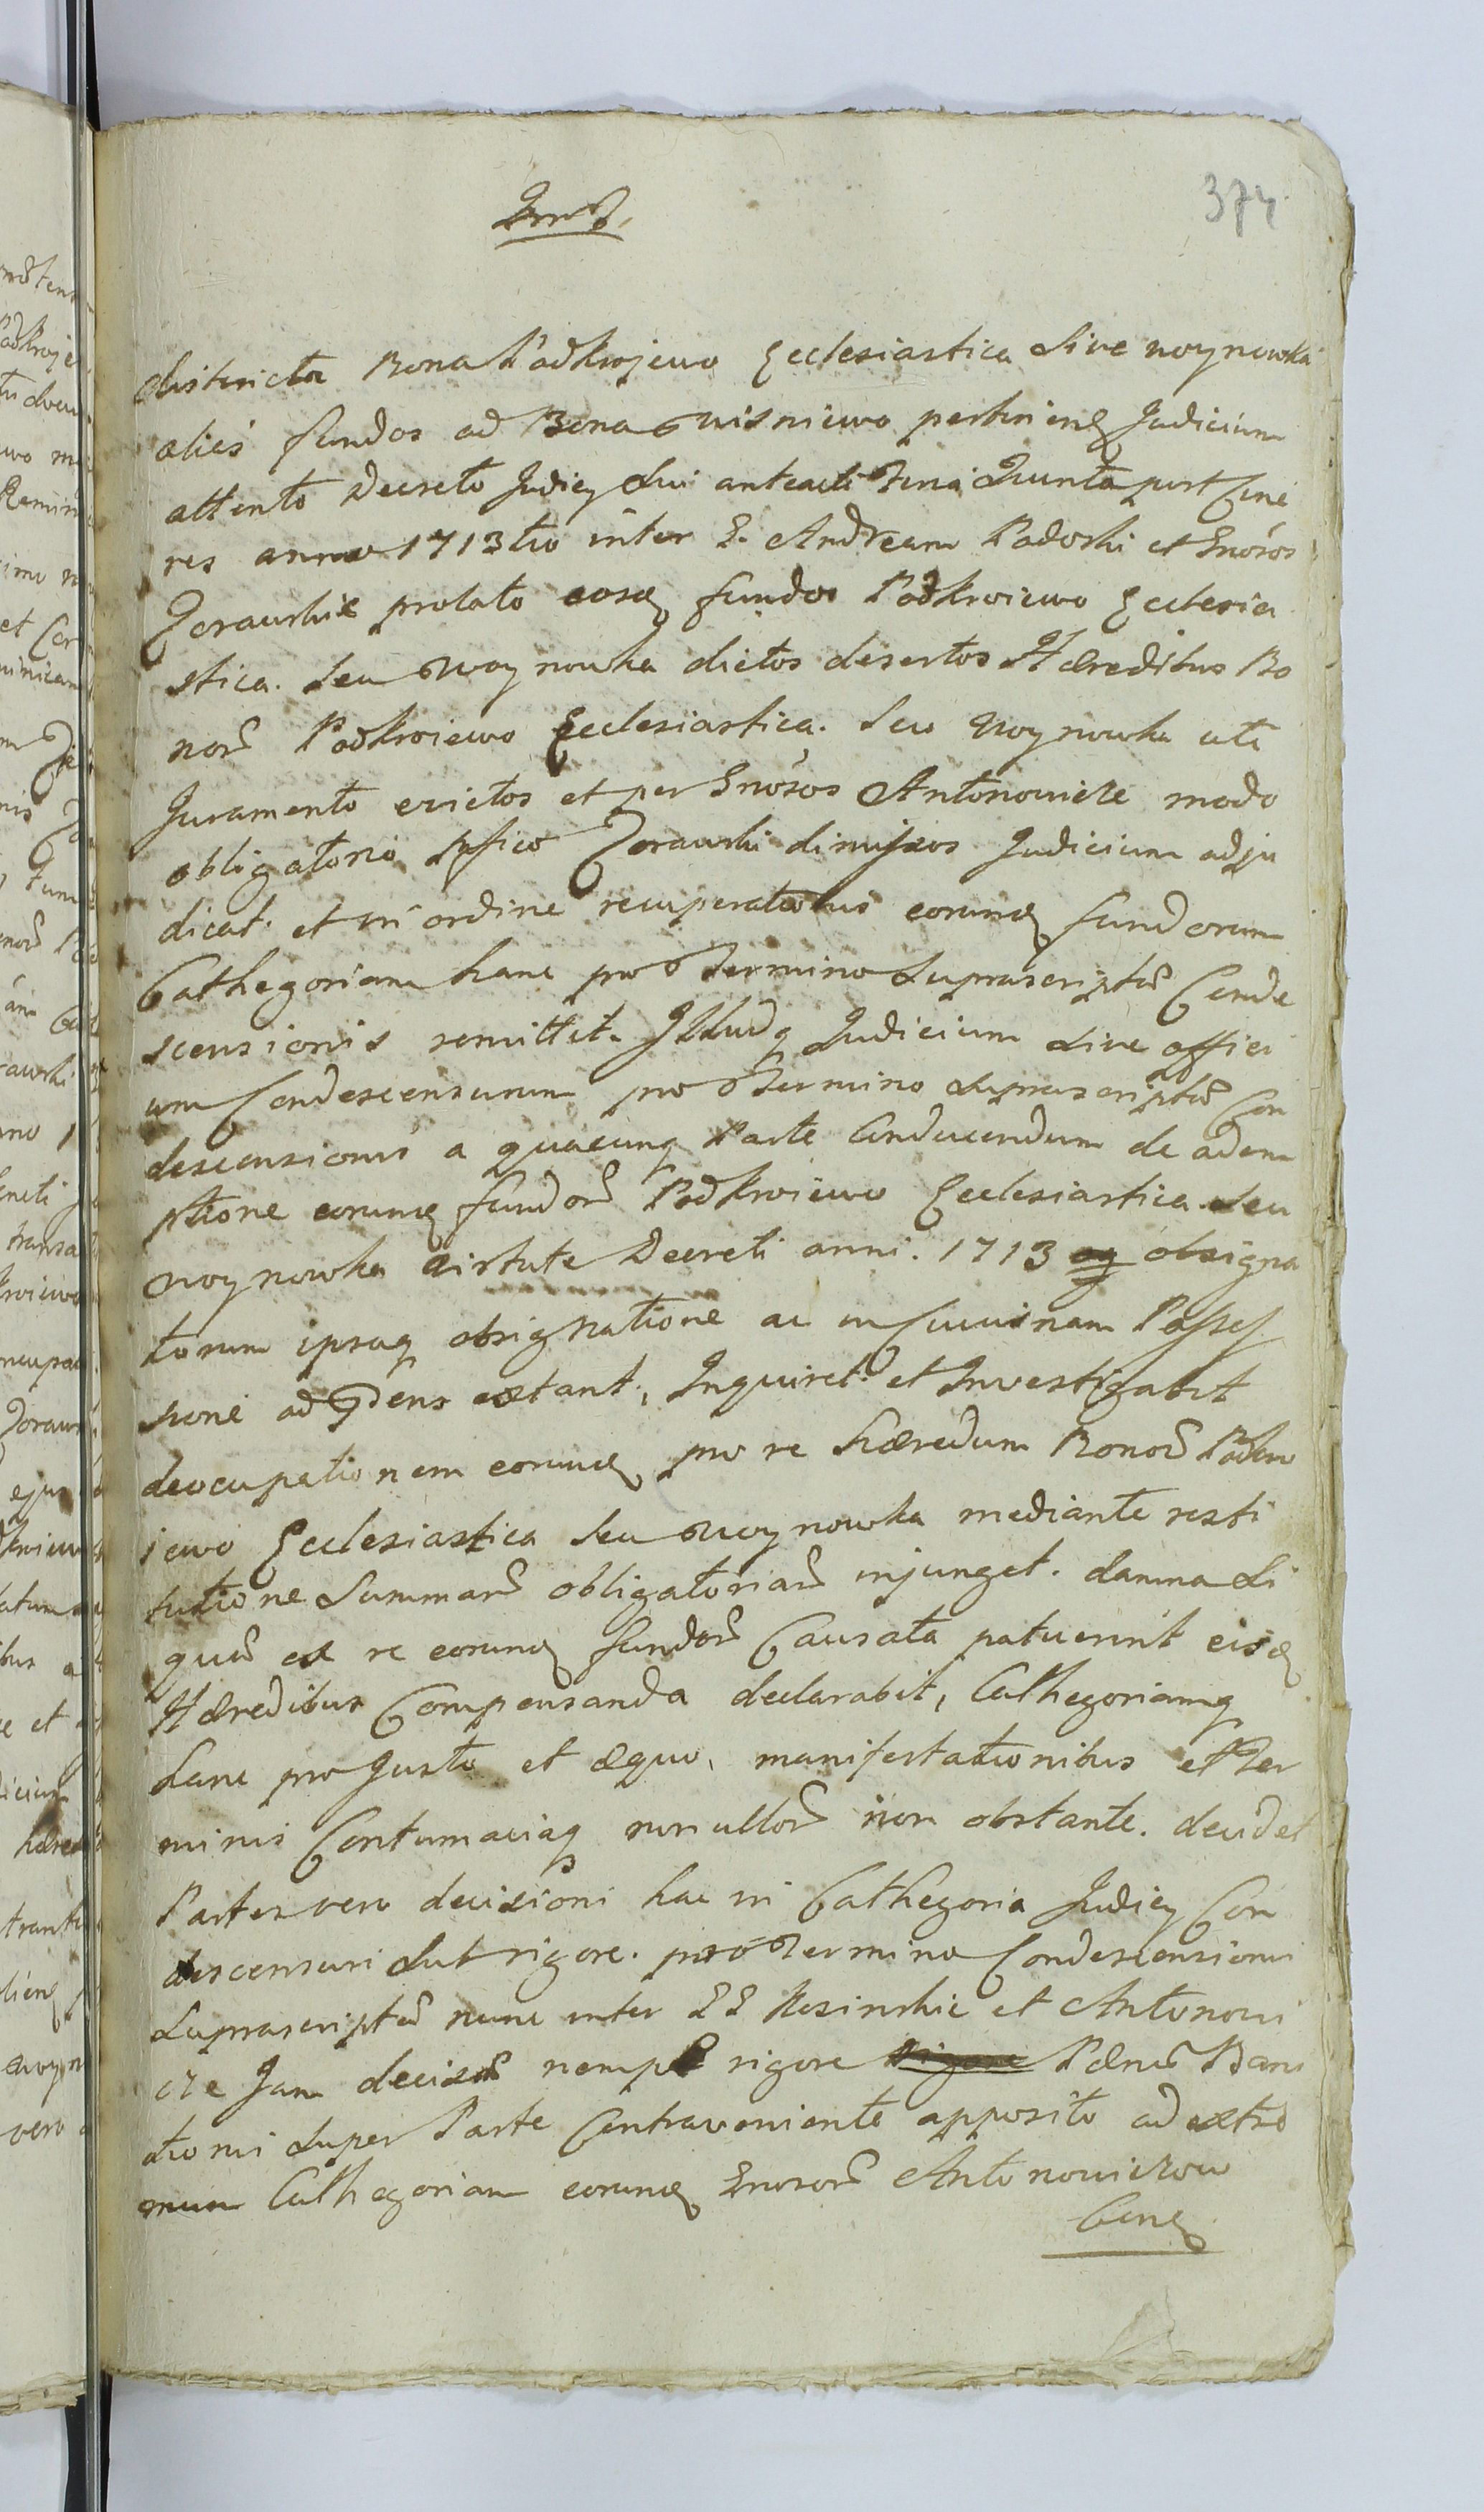 374
districta Bona Podkrojewo Ecclesiastica Sive Woynowka
alias fundos ad Bona Wisniewo pertinen Judicium
attento Decreto Judicij Sui anteacti Feria Quinta post Cine
res anno 1713tio inter G. Andream Padoski et Gnosos
Zorawskie prolato eosd fundos Podkroiewo Ecclesia
stica. Seu Woynowka dictos desertos Hæredibus Bo
nor Podkroiewo Ecclesiastica. Seu Woynowka uti
Juramento evictos et per Gnosos Antonowicze modo
obligatorio Spfico Zorawski dimissos Judicium adju
dicat. et in ordine recuperationis eorund fundorum
Cathegoriam hanc pro Termino Suprascriptæ Conde
scensionis remittit. Illudq Judicium Sive offici
um Condescensurum pro Termino Suprascriptæ Con
descensionis a quacunq Parte Conducendum de adem
ptione eorund fundor Podkroiewo Ecclesiastica Seu
Woynowka virtute Decreti anni. 1713 obsigna
torum ipsaq obsignatione ac in cuius nam Posses
sione ad præns extant, Inquiret. et Investigabit
deocupationem eorund pro re hæredum Bonor Podkro
iewo Ecclesiastica Seu Woynowka mediante resti
tutione Summar obligatoriar injunget. damna Si
quæ ex re eorund fundor Causata patuerint eisd
Hæredibus Compensanda declarabit, Cathegoriamq
hanc pro Justo et æquo, manifestationibus et Ter
minis Contumaciaq non ullor non obstante. decidet
Partes vero decisioni hac in Cathegoria Judicij Con
descensuri Sub rigore. pro Termino Condescensionis
Suprascriptæ nunc inter GG Kosinskie et Antonowi
cze Jam decisæ nempe rigore rigore Pænæ Bani
tionis Super Parte Contraveniente apposito ad extre
mum Cathegoriam eorund Gnosor Antonowiczow
Cum